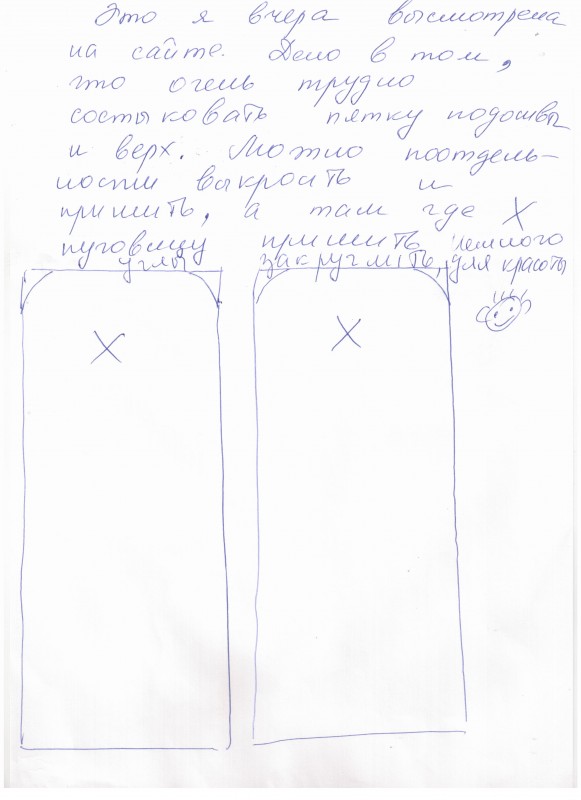 Это я вчера высмотрела
на сайте. Дело в том,
что очень трудно
состыковать пятку подошвы
и верх. Можно поотдель-
ности выкроить и
пришить, а там где X
пуговицу пришить, немного
углы закруглить, для красоты
X X